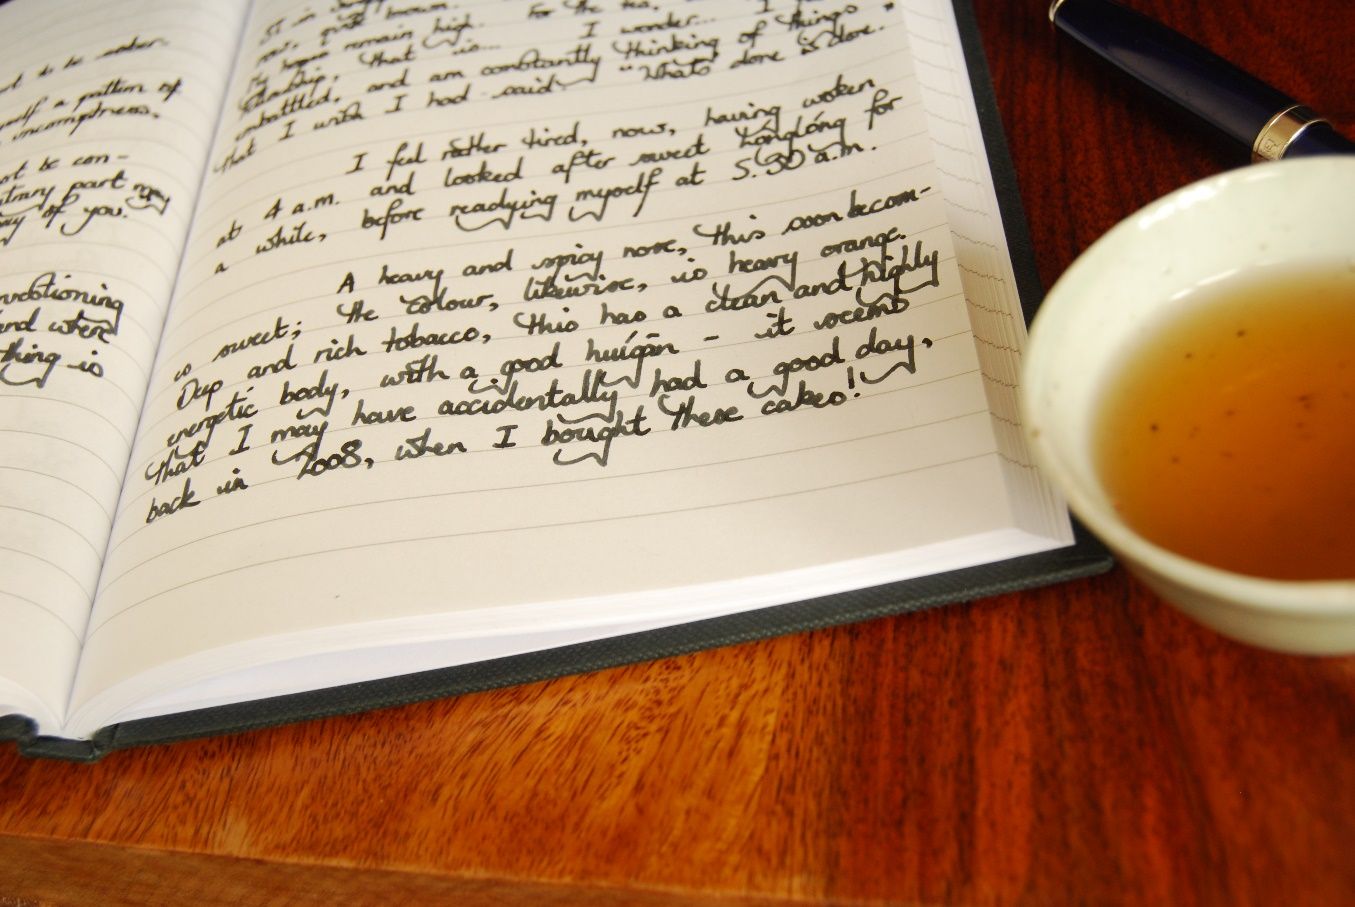 to be under-
a pattern of
incomptness.
art to con-
trary part may
of you.
nditioning
and where
thing is
is in
now, quite brown. For the tea.
My hopes remain high.
that is... I wonder... I
embattled, and am constantly thinking of things
that I wish I had said. "What's done is done."
I feel rather tired, now, having woken
at 4 a.m. and looked after sweet Xonglóng for
a while, before readying myself at 5.30 a.m.
A heavy and spicy nose, this soon becom-
is sweet; the colour, likewise, is heavy orange.
Deep and rich tobacco, this has a clean and highly
energetic body, with a good huígān - it seems
that I may have accidentally had a good day,
back in 2008, when I bought these cakes!